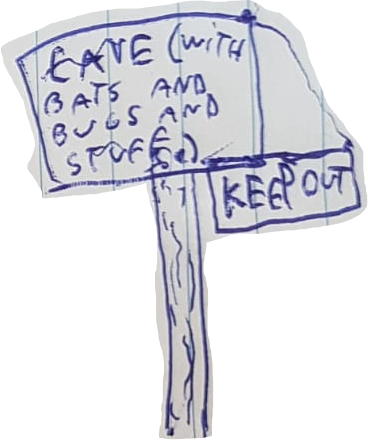 CAVE (WITH
BATS AND
BUGS AND
STUFF.)
KEEP OUT